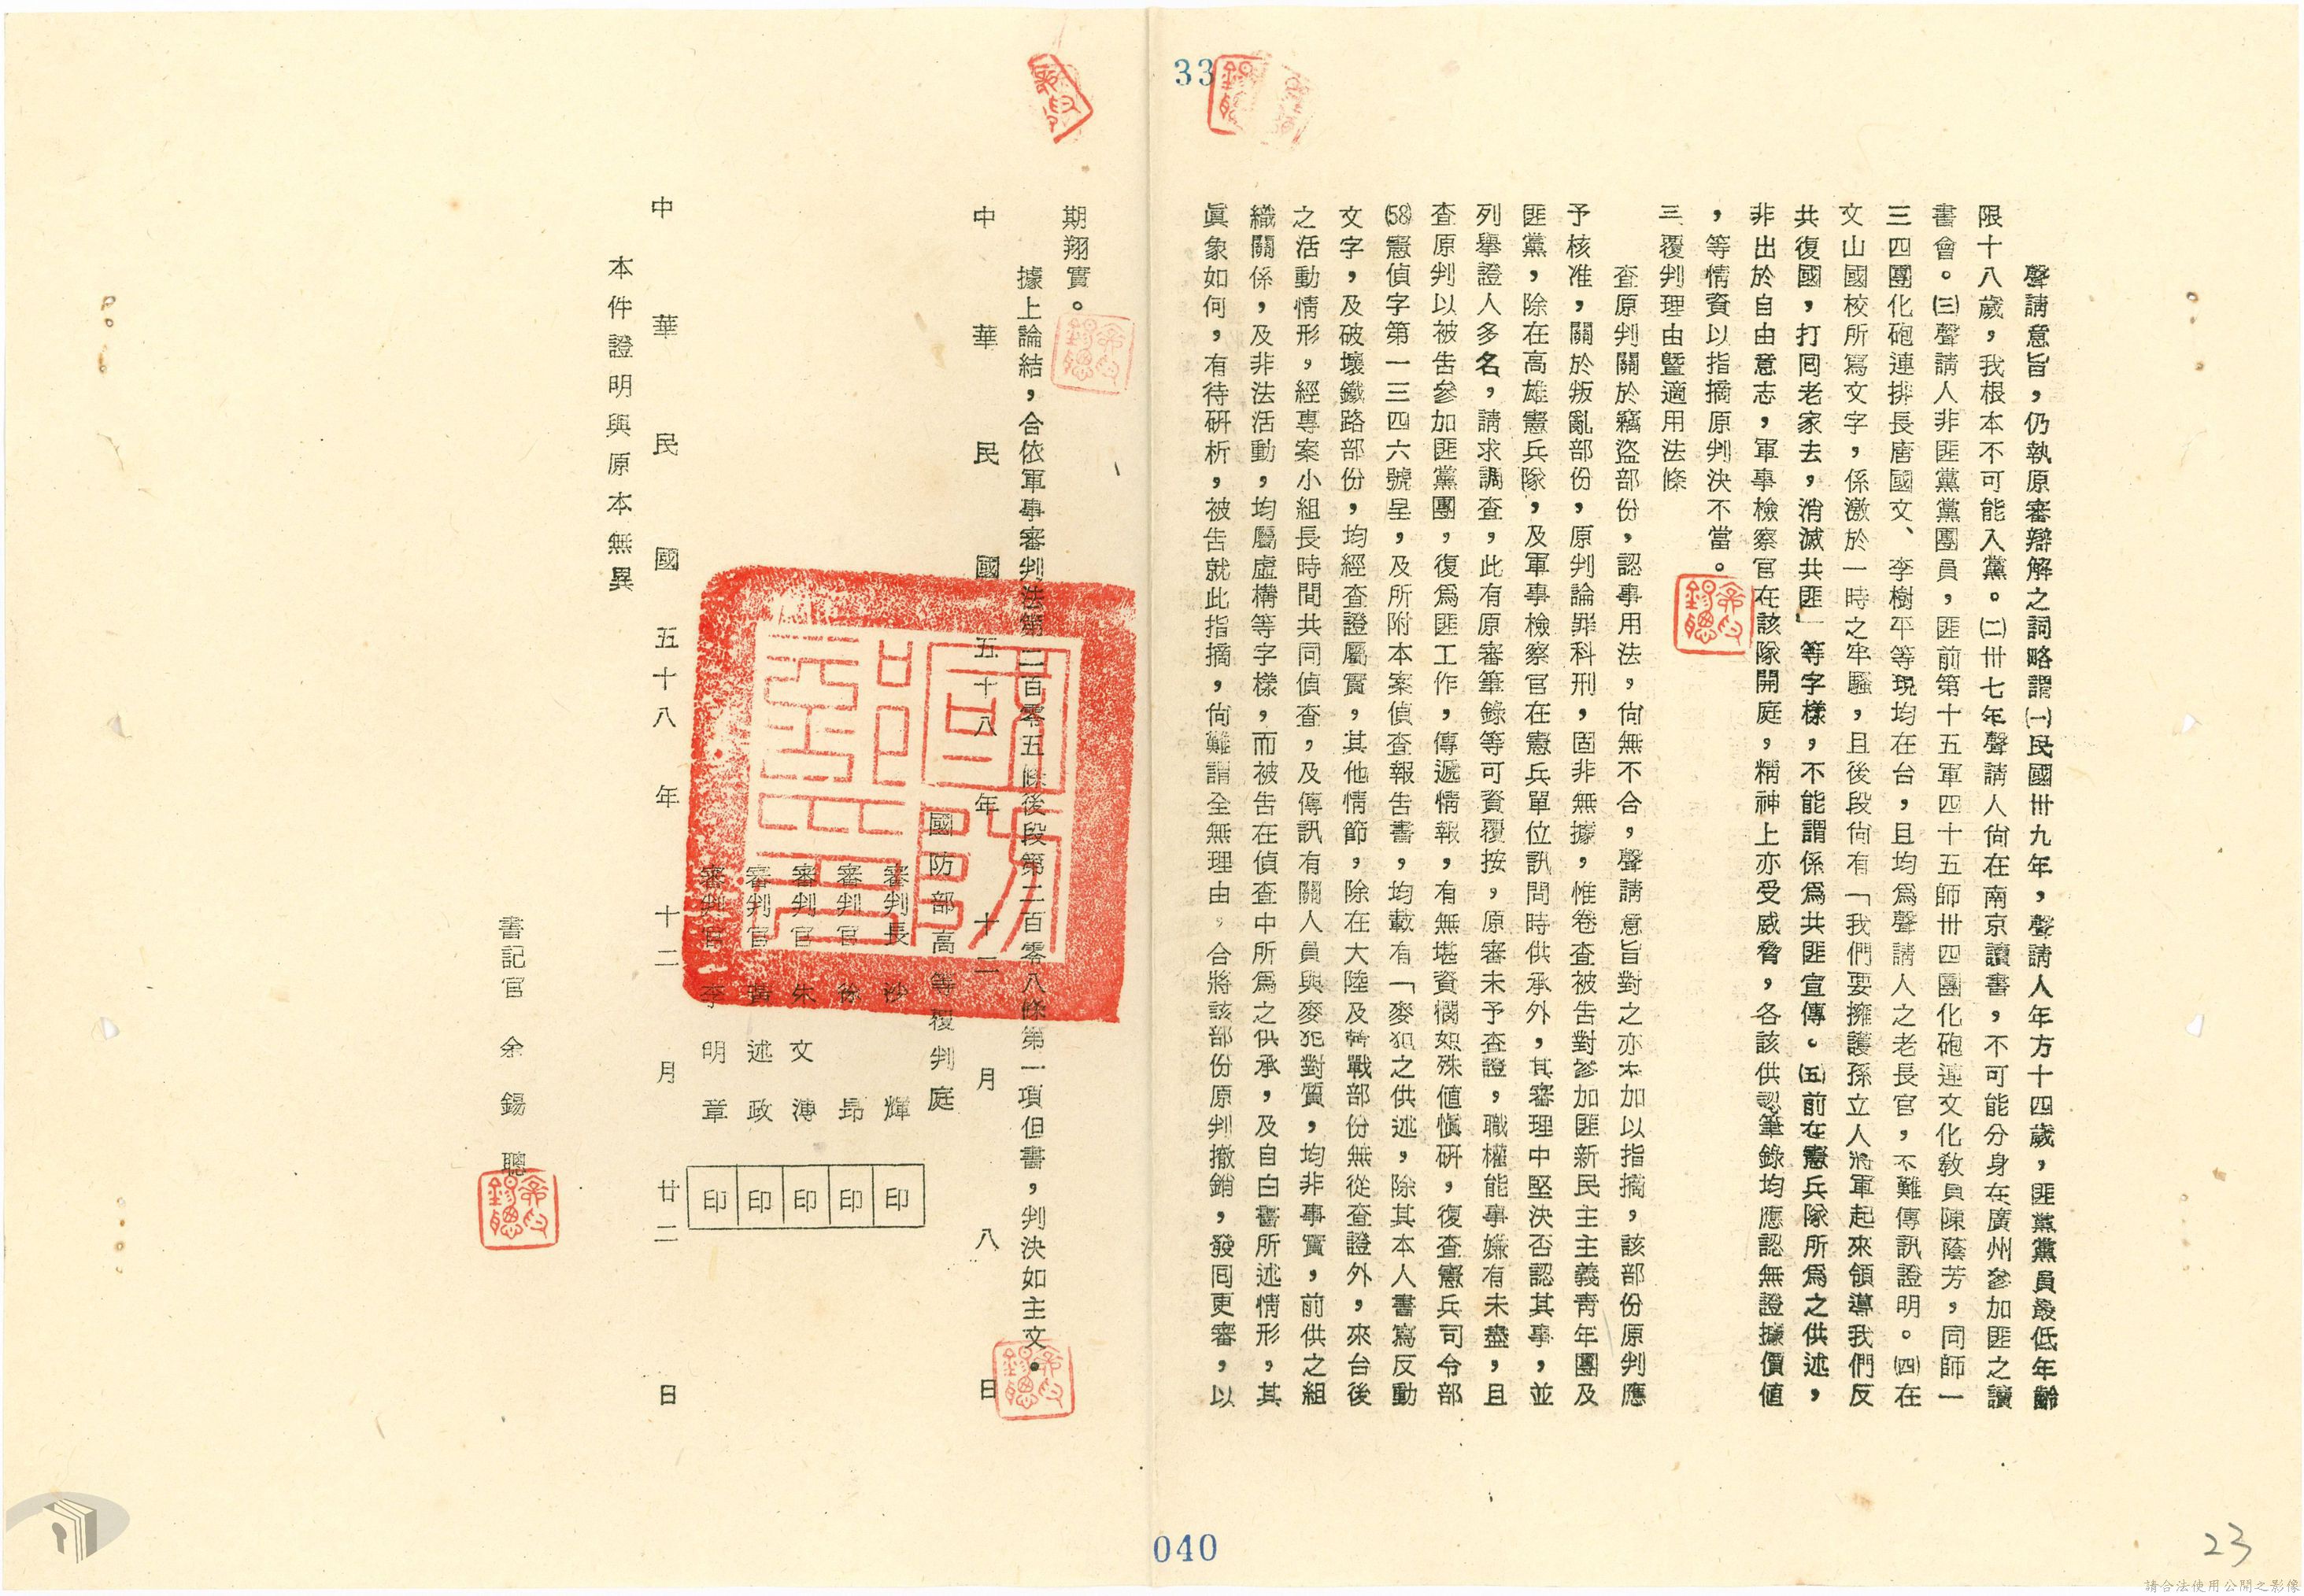 33
聲請意旨，仍執原審辯解之詞略謂㈠民國卅九年，聲請人年方十四歲，匪黨黨員最低年齡
限十八歲，我根本不可能入黨。㈡卅七年聲請人尙在南京讀書，不可能分身在廣州參加匪之讀
書會。㈢聲請人非匪黨黨團員，匪前第十五軍四十五師卅四團化砲連文化敎員陳蔭芳，同師一
三四團化砲連排長唐國文、李樹平等現均在台，且均爲聲請人之老長官，不難傳訊證明。㈣在
文山國校所寫文字，係激於一時之牢騷，且後段尙有「我們要擁護孫立人將軍起來領導我們反
共復國，打囘老家去，消滅共匪」等字樣，不能謂係爲共匪宣傳。㈤前在憲兵隊所爲之供述，
非出於自由意志，軍事檢察官在該隊開庭，精神上亦受威脅，各該供認筆錄均應認無證據價値
，等情資以指摘原判決不當。
三覆判理由暨適用法條
查原判關於竊盜部份，認事用法，尙無不合，聲請意旨對之亦未加以指摘，該部份原判應
予核准，關於叛亂部份，原判論罪科刑，固非無據，惟卷查被告對參加匪新民主主義靑年團及
匪黨，除在高雄憲兵隊，及軍事檢察官在憲兵單位訊問時供承外，其審理中堅決否認其事，並
列舉證人多名，請求調查，此有原審筆錄等可資覆按，原審未予查證，職權能事嫌有未盡，且
查原判以被告參加匪黨團，復爲匪工作，傳遞情報，有無堪資憫恕殊値愼硏，復查憲兵司令部
(58)憲偵字第一三四六號呈，及所附本案偵查報告書，均載有「麥犯之供述，除其本人書寫反動
文字，及破壞鐵路部份，均經查證屬實，其他情節，除在大陸及韓戰部份無從查證外，來台後
之活動情形，經專案小組長時間共同偵查，及傳訊有關人員與麥犯對質，均非事實，前供之組
織關係，及非法活動，均屬虛構等字樣，而被告在偵查中所爲之供承，及自白書所述情形，其
眞象如何，有待硏析，被告就此指摘，尙難謂全無理由，合將該部份原判撤銷，發囘更審，以
期翔實。
據上論結，合依軍事審判法第二百零五條後段第二百零八條第一項但書，判決如主文。
中華民國五十八年十二月八日
國防部高等覆判庭
審判長 沙輝 印
審判官 徐昻 印
審判官 朱文溥 印
審判官 黃述政 印
審判官 李明章 印
中華民國五十八年十二月廿二日
本件證明與原本無異
書記官 余錫聰
040
23
請合法使用公開之影像